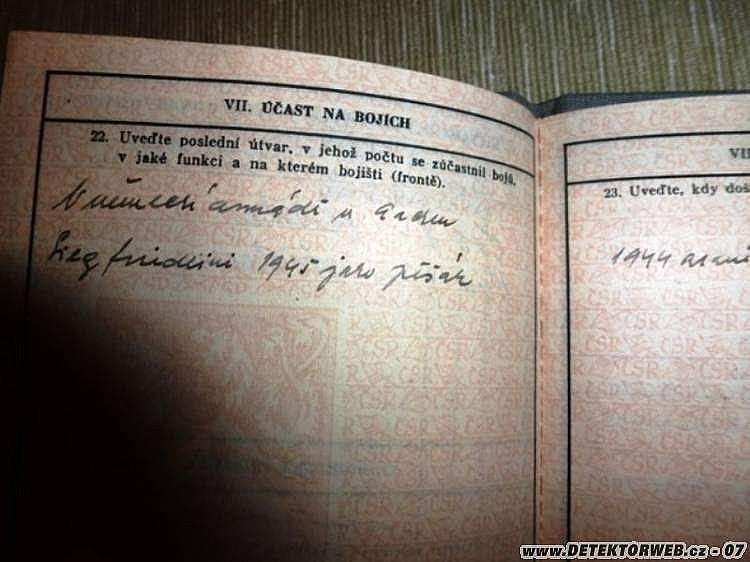 VII. ÚČAST NA BOJÍCH
22. Uveďte poslední útvar, v jehož počtu se zúčastnil bojů,
v jaké funkci a na kterém bojišti (frontě).
armádi u
1945 jako pěšák
VII
23. Uveďte, kdy doš
1944
www.DETEKTORWEB.cz - 07